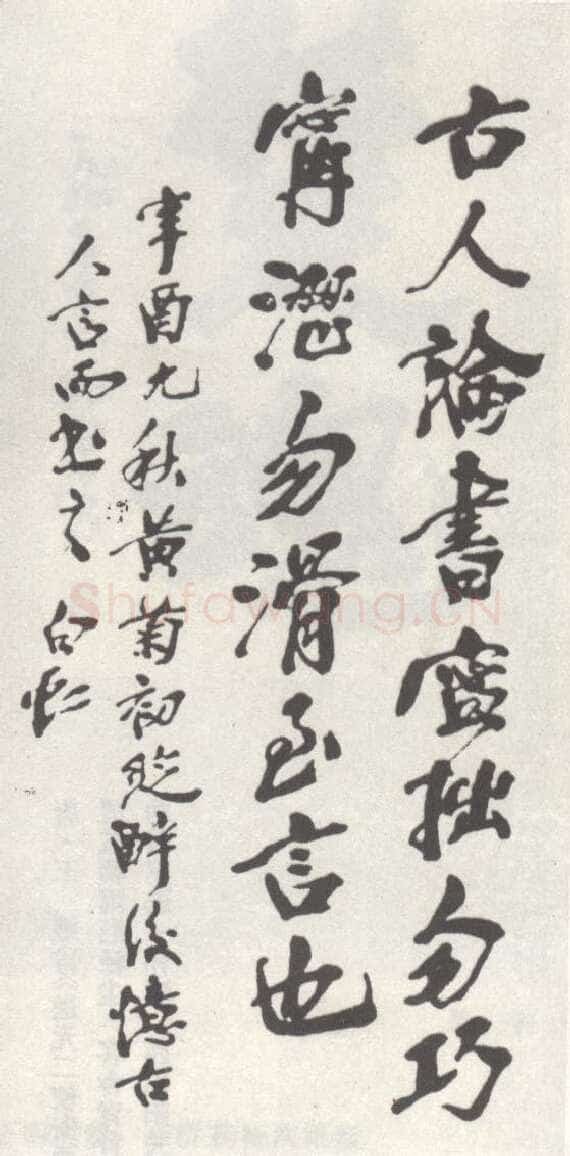 古人論書寧拙勿巧
甯澀勿滑至言也
辛酉九秋黄菊初綻醉後憶古
人言而書之 白蕉
Shufawang.CN